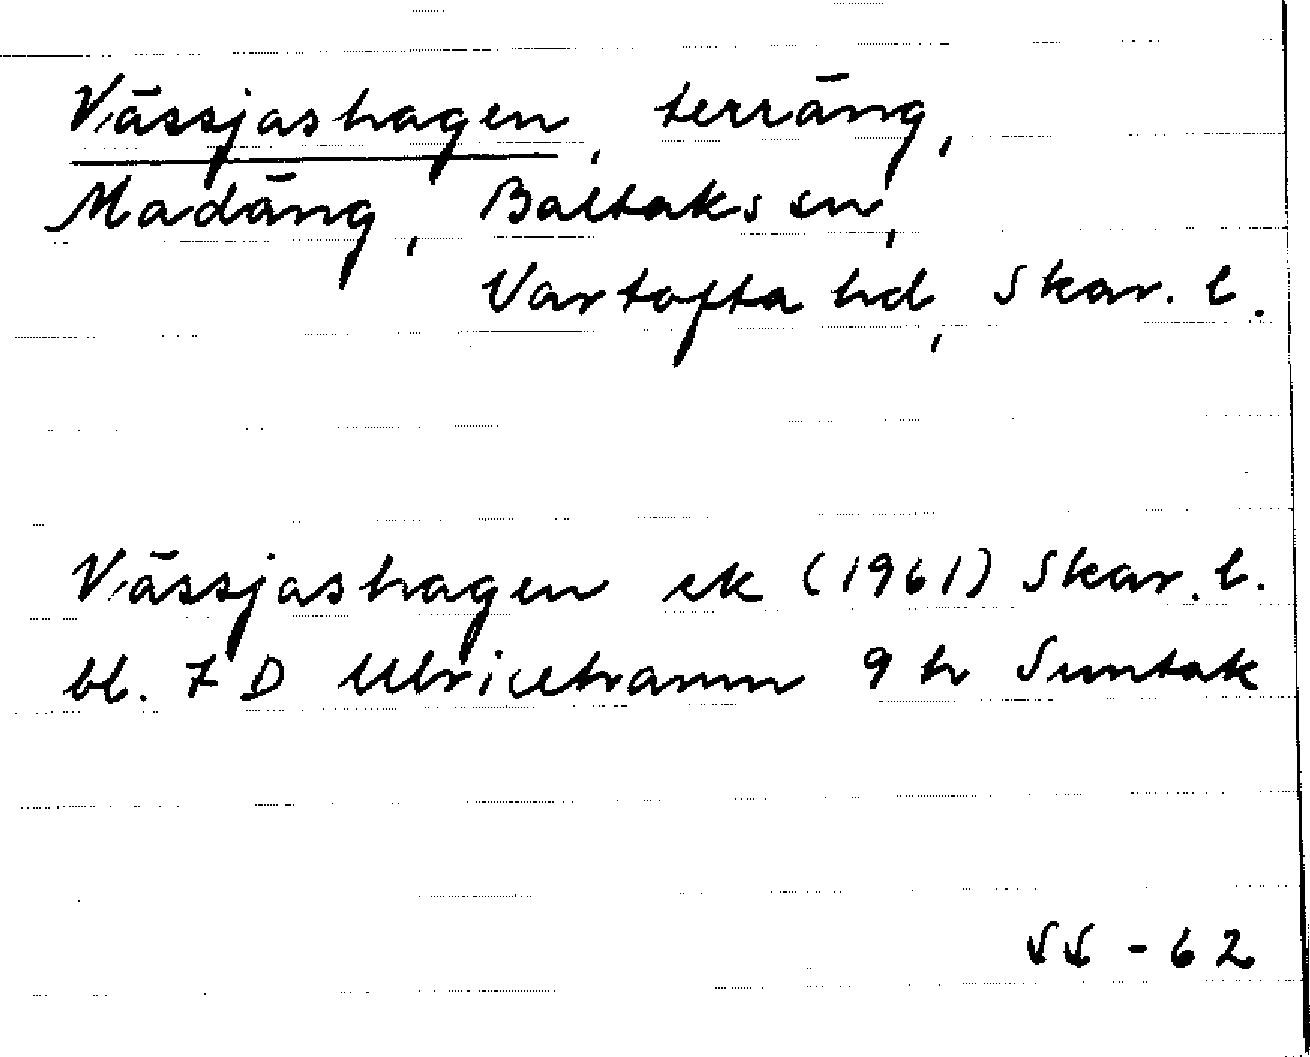 Vässjashagen, terräng,
Madäng, Baltaks sn,
Vartofta hd, Skar. l.
Vässjashagen ek (1961) Skar. l.
bl. 7 D Ulricehamn 9 h Suntak
SS - 62